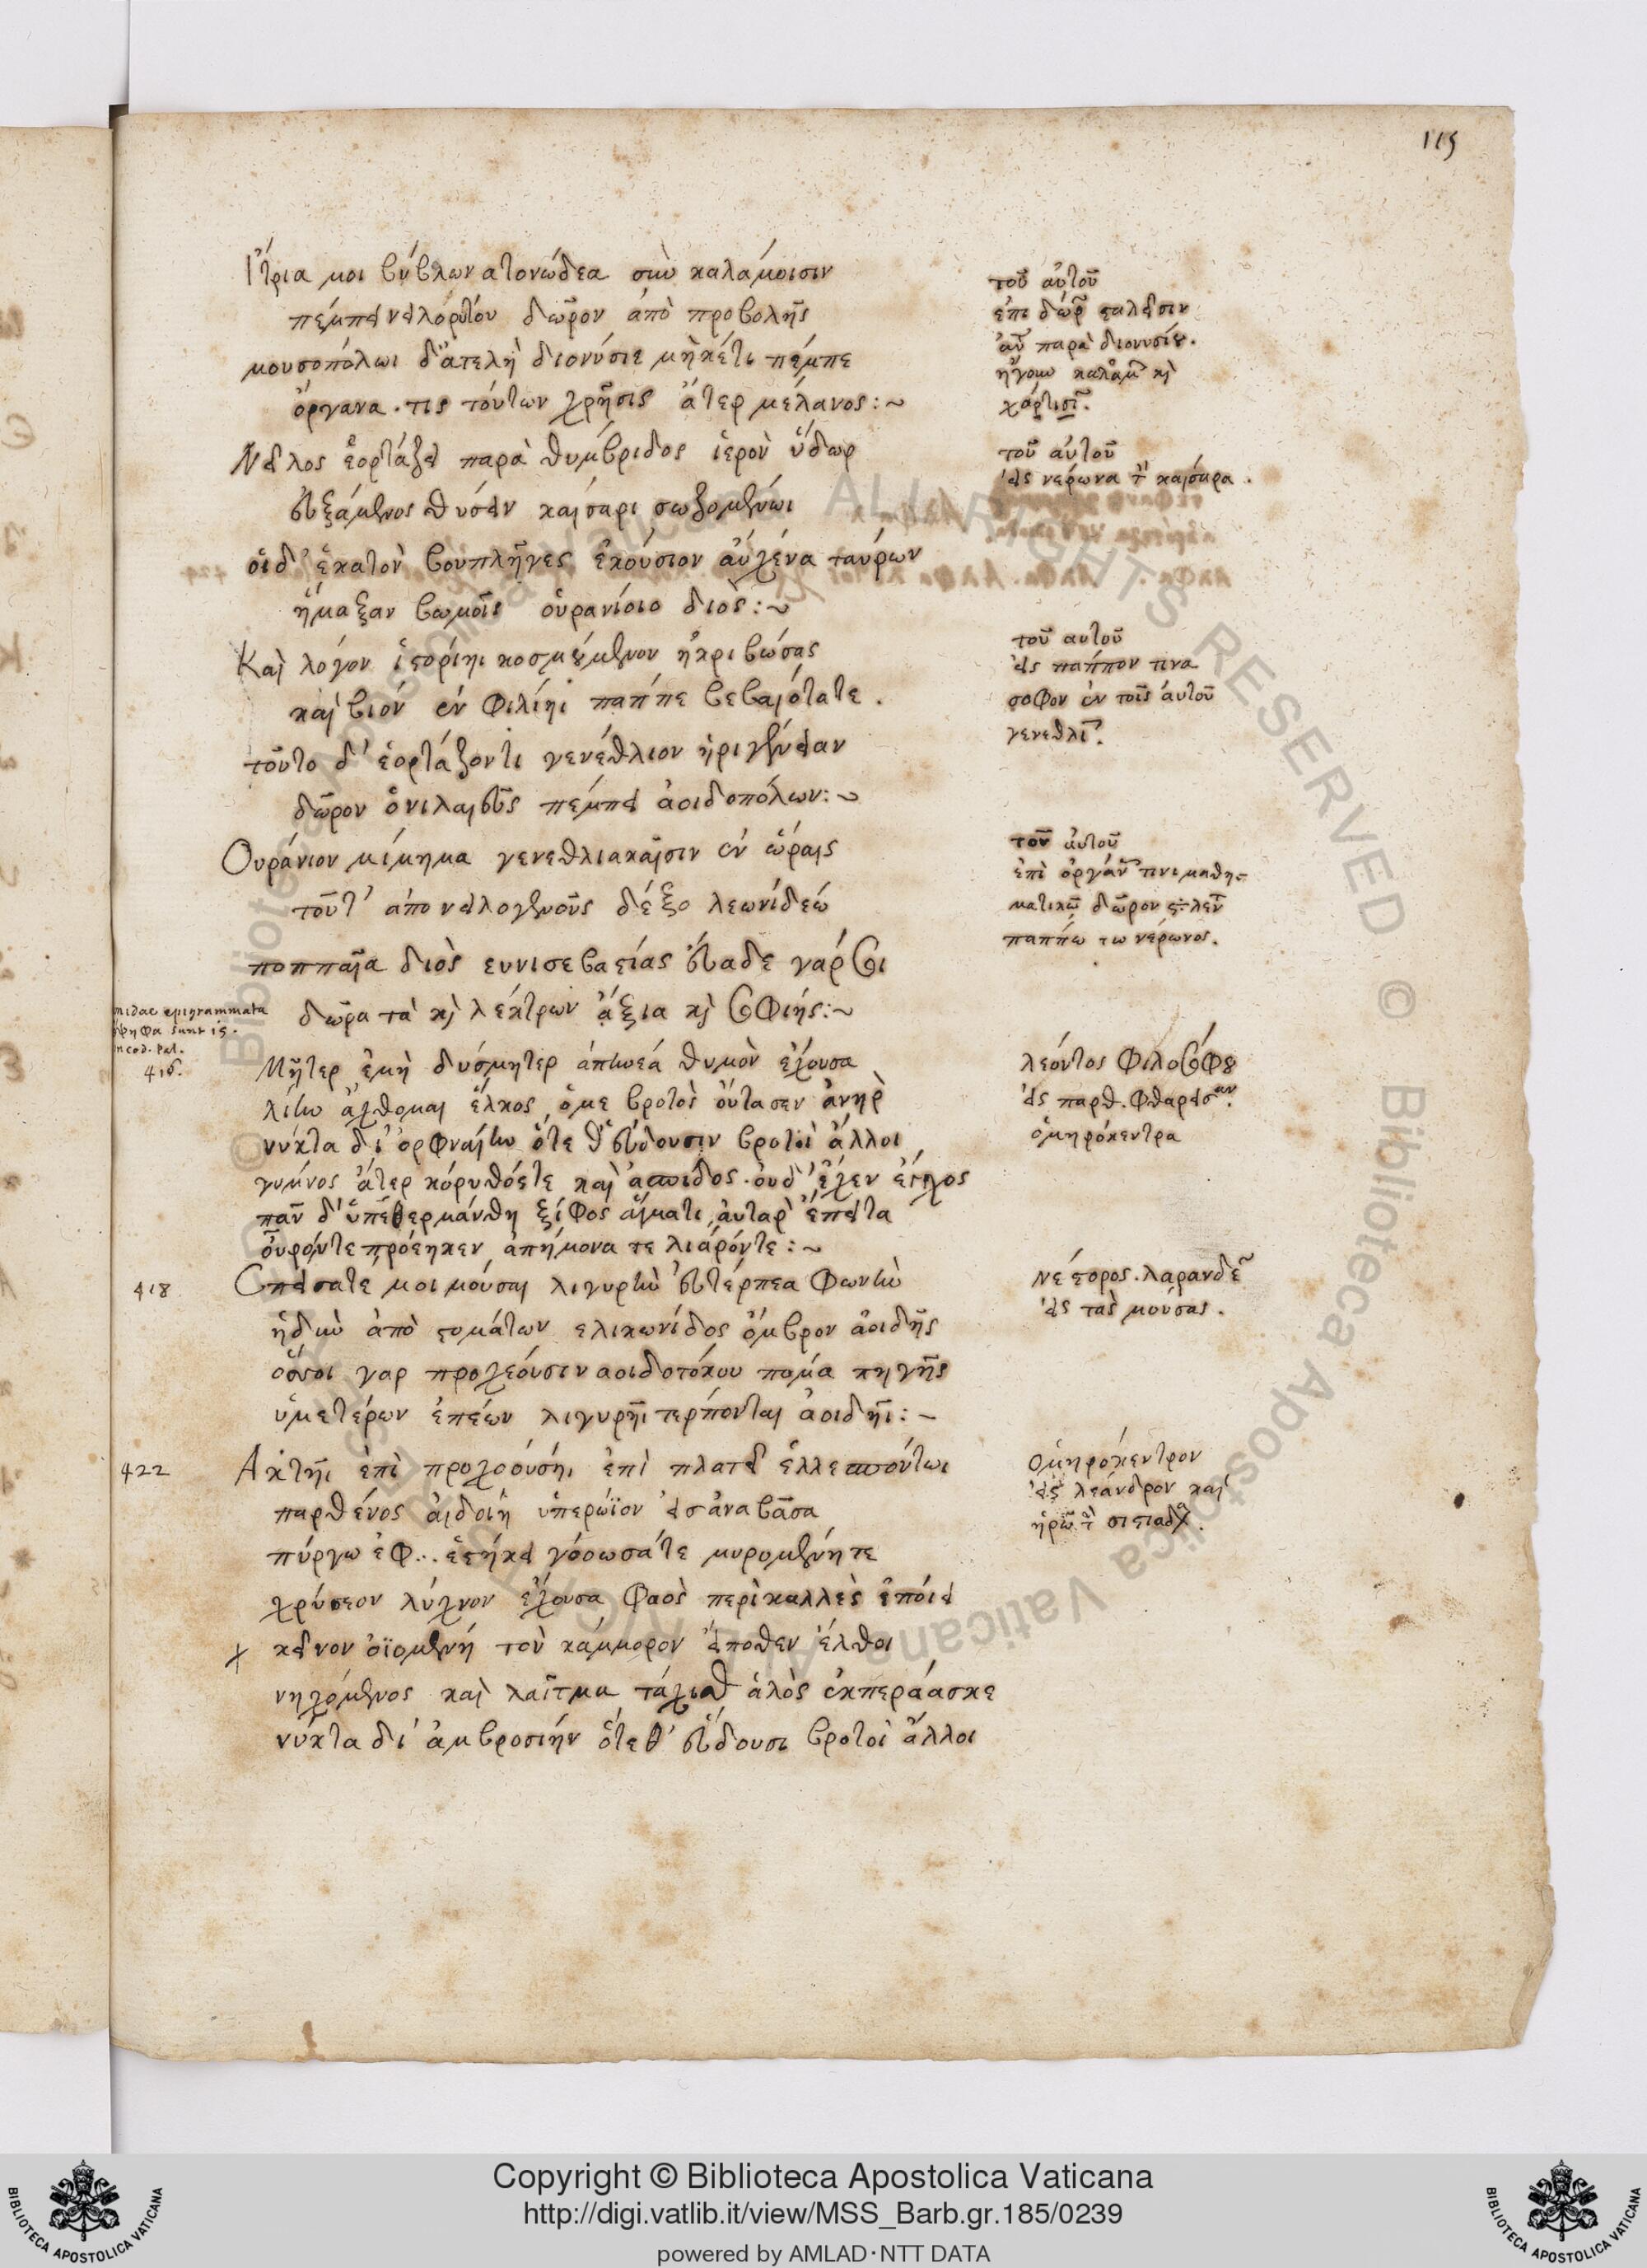 115
Ἴτρια μοι βύβλων ατονώδεα σὺν καλάμοισιν
πέμπει νειλορύτου δῶρον ἀπὸ προβολῆς
μουσοπόλωι δ' ἄτελῆ διονύσιε μὴκέτι πέμπε
ὄργανα. τις τούτων χρῆσις ἄτερ μέλανος:~
τοῦ αὐτοῦ
ἐπι δώρ σταλεῖσιν
αὐ παρὰ διονυσίου.
ἤγουν καλάμ κὶ
χάρτισι.
Νεῖλος ἑορτάζει παρὰ θυμβριδος ἱερὸν ὕδωρ
εὐξάμενος θύσειν καίσαρι σωζομένωι
οἱδ' ἑκατὸν βουπλῆγες ἑκούσιον αὐχένα ταύρων
ἥμαξαν βωμοῖς οὐρανίοιο διὸς:~
τοῦ αὐτοῦ
εἰς νερωνα τ καίσαρα.
Καὶ λόγον ἱστορίηι κοσμούμενον ἠκριβώσας
καὶ βιόν ἐν φιλίηι παππε βεβαιότατε.
τοῦτο δ' ἑορτάζοντι γενέθλιον ἠριγένειαν
δῶρον ὁνιλαιεῦς πέμπει ἀοιδοπόλων:~
τοῦ αυτοῦ
εἰς παππον τινα
σοφον ἐν τοῖς αὐτοῦ
γενεθλι.
Ουράνιον μίμημα γενεθλιακαῖσιν ἐν ὥραις
τοῦτ' ἀπο νειλογενοῦς δέξο λεωνίδεώ
ποππαῖα διὸς ευνι σεβαστίας εὔαδε γάρ σοι
δῶρα τὰ κὶ λέκτρων ἄξια κὶ σοφιής:~
τοῦ αὐτοῦ
ἐπὶ ὀργάν τινι μαθη-
ματικῶ δῶρον
παππίω τω νέρωνος.
nidae epigrammata
sunt 15.
in cod. Pal.
416.
Μῆτερ ἐμὴ δύσμητερ ἀπηνεά θυμὸν ἔχουσα
λίην ἄχθομαι ἕλκος, ὁ με βροτὸς οὔτασεν ἀνηρ
νύκτα δι' ὀρφναίην ὅτε θ' εὕδουσιν βροτοὶ ἄλλοι
γυμνος ἄτερ κόρυθόςτε καὶ ἀσπίδος. οὐδ' ἔχεν ἔγχος
παν δ' ὑπεθερμάνθη ξίφος αἵματι, αὐταρ ἔπειτα
οὖρόντε πρόεηκεν ἀπήμονα τε λιαρόντε:~
λεόντος φιλοσόφου
εἰς παρθ. φθαρεῖσαν.
ὁμηρόκεντρα
418
Σπείσατέ μοι μοῦσαι λιγυρὴν εὐτέρπεα φωνὴν
ἡδὺν ἀπὸ στομάτων ελικωνίδος ὄμβρον ἀοιδῆς
ὅσσοι γαρ προχέουσιν αοιδοτόκου πομα πηγῆς
ὑμετέρων ἐπέων λιγυρῆι τερπονται ἀοιδῆι:~
Νέστορος. λαρανδε
εἰς τὰς μούσας.
422
Ακτῆι ἐπὶ προχρούσηι ἐπὶ πλατεῖ ἑλλεσπόντωι
παρθένος αἰδοίη ὑπερώϊον εἰσ ἀναβᾶσα
πύργω ἐφ... ἑστήκει γόοωσάτε μυρομένητε
χρύσεον λύχνον ἔχουσα φαὸς περὶκαλλες ἐποίει
× κεῖνον ὀϊομένή τὸν κάμμορον εἴποθεν ἔλθοι
νηχόμενος καὶ λαῖτμα τάχισθ ἁλὸς ἐκπεράασκε
νύκτα δι' ἀμβροσιήν ὅτε θ' εὕδουσι βροτοὶ ἄλλοι
Ομηρόκεντρον
εἰς λεάνδρον καὶ
ἡρω τ
© Biblioteca Apostolica Vaticana ALL RIGHTS RESERVED © Biblioteca Apostolica Vaticana
Copyright © Biblioteca Apostolica Vaticana
http://digi.vatlib.it/view/MSS_Barb.gr.185/0239
powered by AMLAD·NTT DATA
BIBLIOTECA APOSTOLICA VATICANA
BIBLIOTECA APOSTOLICA VATICANA